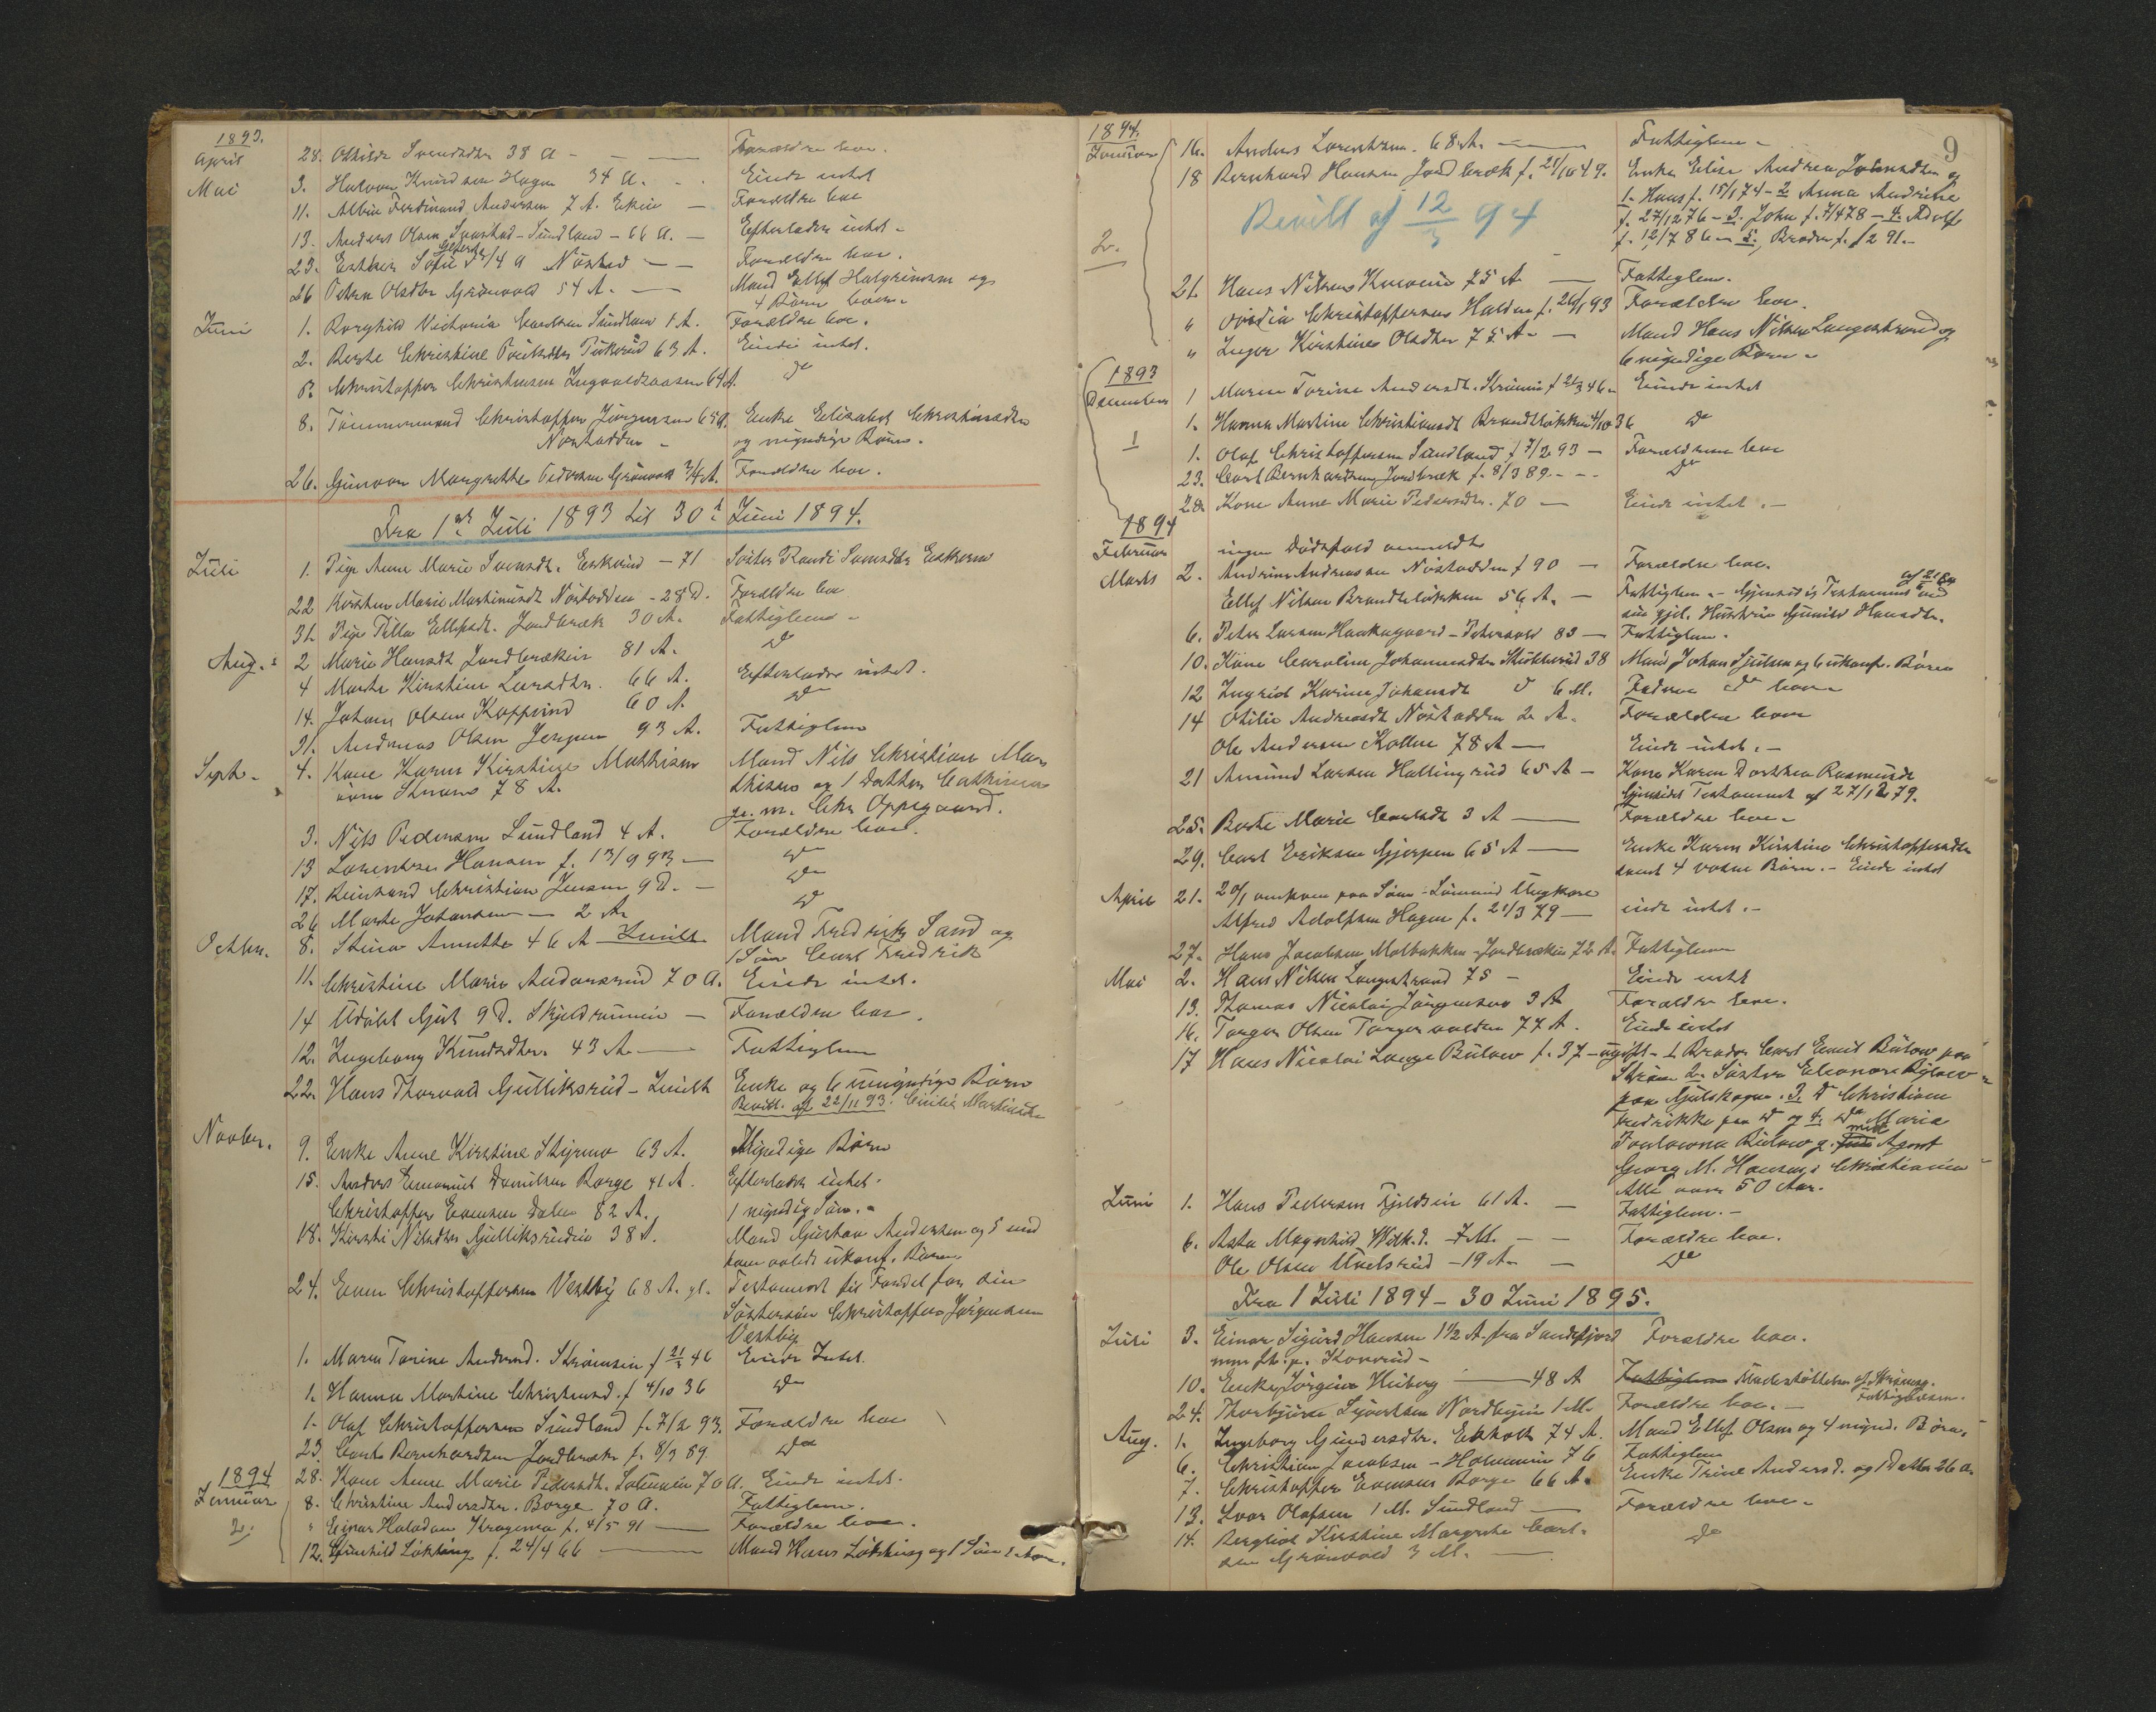 1893.
April 28. Othilde Svendsdtr 38 A - Forældre leve.
Mai 3. Halvor Knudsen Hagen 34 A. Eiede intet
11. Albin Ferdinand Andersen 7 A. Ekeie - Forældre leve
13. Anders Olsen - Sundland - 66 A. - Efterlader intet -
23. Esther Sofie 3/4 A Nøsted - Forældre leve.
26 Olsdtr Grønvold 54 A. - Mand Ellef Halgrimsen og
4 Børn leve.
Juni 1. Borghild Victoria Carlsen Sundland 1 A. Forældre leve.
2. Berte Christine 63 A. Eiede intet.
8. Christopher Christensen Ingvaldsaasen 64 A. do
8. Tømmermand Christopher Jørgensen 65 A. Enke Elisabet Christiansdtr
Nøstodden - og myndige Børn.
26. Gunvor Margrethe Pedersen Grønvold 3/4 A. Forældre leve.
Fra 1ste Juli 1893 til 30te Juni 1894.
Juli 1. Pige Anne Marie Svensdtr. - 71 Søster Randi Svensdtr
22 Kirsten Marie Martinusdt Nøstodden - 28 D. Forældre leve
31. Pige Ellefsdt. Jordbræk 30 A. Fattiglem -
Aug. 2 Marie Hansdt Jordbrækin 81 A. do
4 Marte Kirstine Larsdtr. 66 A. Efterlader intet.
14. Johan Olsen Kopperud 60 A. do
31. Andreas Olsen Jerpen 93 A. Fattiglem
Sept. 4. Kone Karen Kirstine Mathisen Mand Nils Christian Ma-
78 A. thisen og 1 Datter Cathrine
g. m. Chr Oppegaard.
3. Nils Pedersen Sundland 4 A. Forældre leve.
13 Lorentse Hansen f. 13/9 93 - do
17. Reinhard Christian Jensen 9 D. - do
26 Marte Johansen - 2 A. do
Octbr. 8. Stina Annette 46 A Mand Fredrik Sand og
1 Søn Carl Fredrik
11. Christine Marie Andorsrud 70 A. Eiede intet.
14 Udøbt Gut 9 D. - Forældre leve.
12. Ingeborg Knudsdtr. 43 A. - Fattiglem
22. Hans Thorvald Gulliksrud - Enke og 6 umyndige Børn
Bevill. af 22/11 93. Cecilie
Novbr. 9. Enke Anne Kirstine 63 A. Myndige Børn
15. Anders Emanuel Danielsen Borge 41 A. Efterlader intet.
Christopher Evensen Dalen 82 A. 1 myndig Søn.
18. Kirsti Nilsdtr Gulliksrudeie 38 A. Mand Gustav Andersen og 5
Børn
24. Even Christophersen Vestby 68 A. gl. Testament til Fordel for sin
Søstersøn Christopher Jørgensen
Vestby
1. Maren Torine Andersd. f 21/3 46 Eiede Intet.
1. Hanna Martine Christiansd. f 4/10 36 do
1. Olaf Christophersen Sundland f. 7/2 93. Forældre leve
23. Carl Bernhardsen Jordbræk f. 8/3 89. do
1894 28. Kone Anne Marie Pedersdt. 70 A. Eiede intet.
Januar 8. Christine Andersdtr. Borge 70 A. Fattiglem.
2. " Einar Halvdan f. 4/5 91 - Forældre leve.
12. Gunhild Løkting f. 24/4 66 - Mand Hans Løkting og 1 Søn
9
1894.
Januar 16. Anders Lorentsen. 68 A. - Fattiglem -
18 Bernhard Hansen Jordbræk f. 21/10 49. Enke Elise Andrea og
1. Hans f. 15/1 74 - 2 Anna Andrine
Bevill af 12/3 94 f. 27/12 76 - 3. John f. 7/4 78 - 4. Adolf
2. f. 12/7 86 - 5.
21. Hans Nilsen 75 A - Fattiglem.
" Ovidia Christophersen f. 26/1 93 Forældre leve.
" Inger Kirstine Olsdtr 75 A. - Mand Hans Nilsen Langestrand og
6 myndige Børn -
1893
December 1 Maren Torine Andersdt. f 21/3 46 Eiede intet
1 1. Hanna Martine Christiansdt Brandtløkken 4/10 36 do
1. Olaf Christophersen Sundland f 7/2 93 - Forældrene leve
23. Carl Bernhardsen Jordbræk f. 8/3 89. - do
28. Kone Anne Marie Pedersdtr. 70 - Eiede intet. -
1894
Februar ingen Dødsfald anmeldt
Marts 2. Andrine Andreassen Nøstodden f 90 - Forældre leve.
Ellef Nilsen Brandtløkken 56 A. - Fattiglem. - Gjensidig Testament med
sin gjel. Hustru Gunild Hansdtr.
6. Peter Larsen Haakagaard - 83 - Fattiglem.
10. Kone Caroline Johannesdtr 38 Mand Johan og 6 ukonf. Børn
12 Ingrid Karine Johansdt 6 M. Faderen leve
14 Otilie Andreasdt Nøstodden 2 A. Forældre leve
Ole Andersen Kollen 78 A - Eiede intet. -
21 Amund Larsen Hallingrud 65 A - Kone Karen Dorthea Rasmusdt
Gjensidig Testament af 27/12 79.
25. Berte Marie Carlsdt 3 A - Forældre leve -
29. Carl Eriksen Gjerpen 65 A - Enke Karen Kirstine Christophersdtr
samt 4 voxne Børn. - Eiede intet
April 21. 20/1 omkom paa Søen - Ungkarl
Alfred Adolfsen Hagen f. 21/3 79 - eiede intet. -
27. Hans Jacobsen Molbakken - Jordbrækin 72 A. Fattiglem
Mai 2. Hans Nilsen Langestrand 75 - Eiede intet
13. Thomas Nicolai Jørgensen 3 A Forældre leve.
16. Torger Olsen Torgersvolden 77 A. Eiede intet
17 Hans Nicolai Lange Bülow f. 37 - ugift - 1 Broder Carl Emil Bülow paa
Strøm 2. Søster Eleonore Bülow
paa Gulskogen. 3. do Christiane
Fredrikke paa do og 4. do Maria
Bülow g. med Agent
Georg M. Hansen i Christiania
Alle over 50 Aar.
Juni 1. Hans Pedersen 61 A. - Fattiglem. -
6. Asta Magnhild Wilh. d. 7 M. - Forældre leve.
Ole Olsen - 19 A. - do
Fra 1 Juli 1894 - 30 Juni 1895.
Juli 3. Einar Sigurd Hansen 1 1/2 A. fra Sandefjord Forældre leve.
10. Enke Jørgine Huborg - 48 A Fattiglem Understøttelse af Fattigkassen.
24. Thorbjørn Sjøvolsen Nordbyin 1 M. Forældre leve. -
Aug. 1. Ingeborg Gundersdtr. Ekholt 74 A. Mand Ellef Olsen og 4 mynd. Børn.
6. Christian Jacobsen - 76 Fattiglem
7. Christopher Evensen Borge 66 A. Enke Trine Andersd. og 1 Datter 26 A.
13. Ivar Olafsen 1 M. Sundland - Forældre leve -
14. Bergliot Kirstine Margrethe Carl-
sen Grønvold 3 M. - do